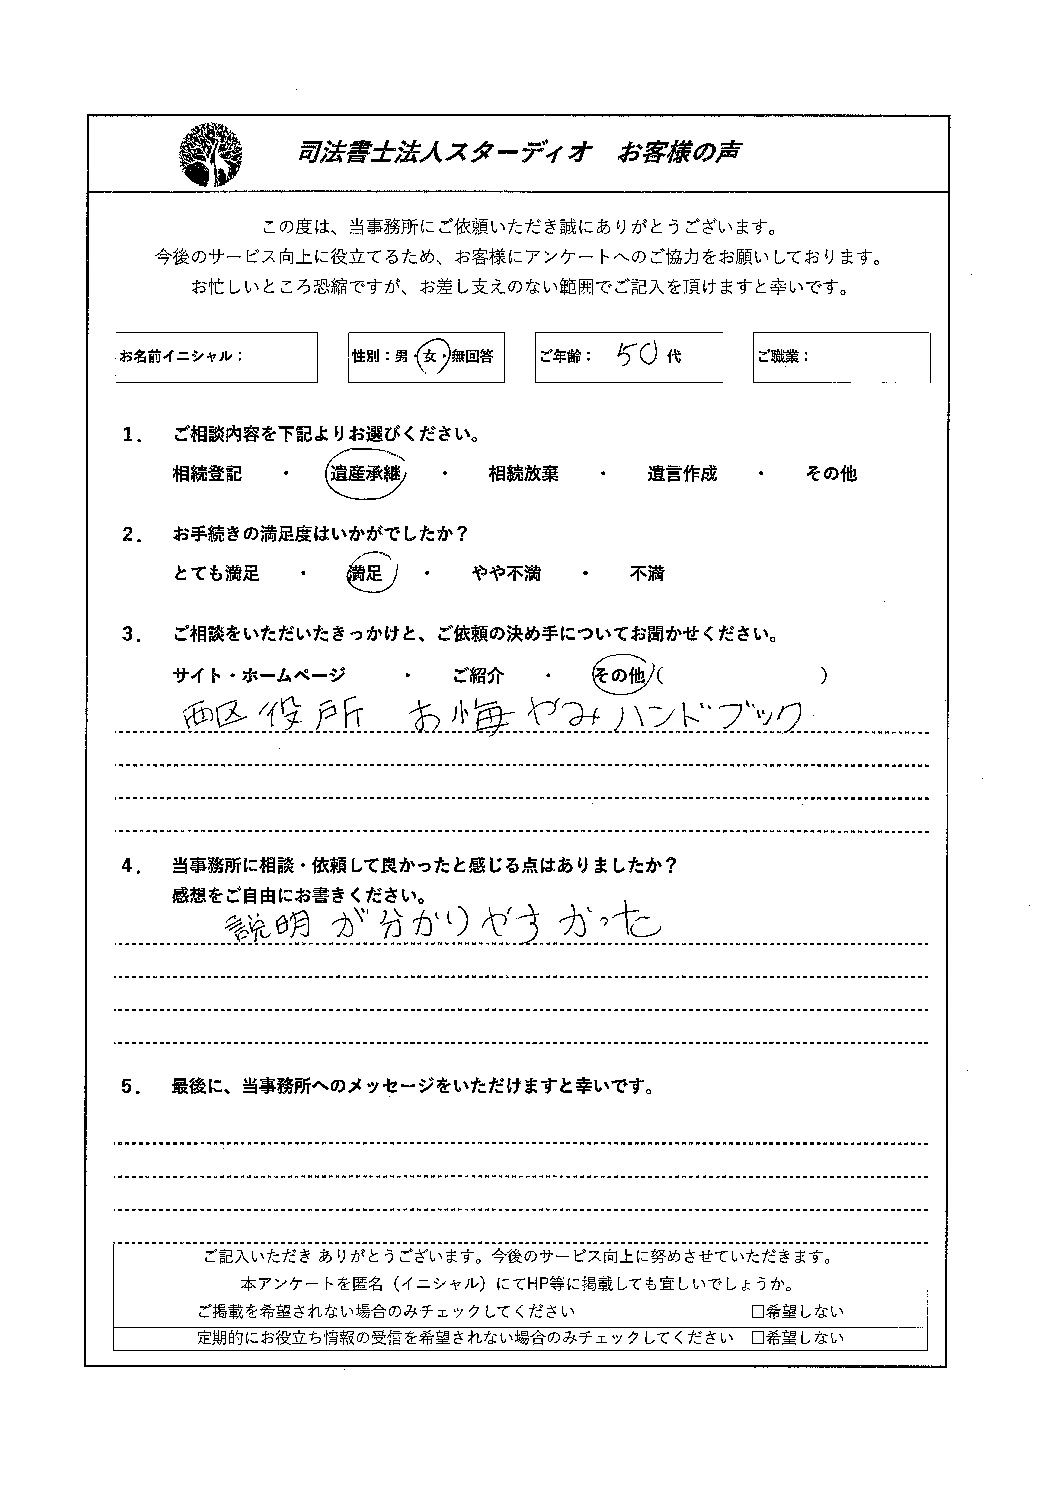 司法書士法人スターディオ　お客様の声
この度は、当事務所にご依頼いただき誠にありがとうございます。
今後のサービス向上に役立てるため、お客様にアンケートへのご協力をお願いしております。
お忙しいところ恐縮ですが、お差し支えのない範囲でご記入を頂けますと幸いです。
お名前イニシャル： 性別：男・女・無回答 ご年齢： 50代 ご職業：
1． ご相談内容を下記よりお選びください。
相続登記 ・ 遺産承継 ・ 相続放棄 ・ 遺言作成 ・ その他
2． お手続きの満足度はいかがでしたか？
とても満足 ・ 満足 ・ やや不満 ・ 不満
3． ご相談をいただいたきっかけと、ご依頼の決め手についてお聞かせください。
サイト・ホームページ ・ ご紹介 ・ その他（ ）
西区役所 お悔やみハンドブック
4． 当事務所に相談・依頼して良かったと感じる点はありましたか？
感想をご自由にお書きください。
説明が分かりやすかった
5． 最後に、当事務所へのメッセージをいただけますと幸いです。
ご記入いただき ありがとうございます。今後のサービス向上に努めさせていただきます。
本アンケートを匿名（イニシャル）にてHP等に掲載しても宜しいでしょうか。
ご掲載を希望されない場合のみチェックしてください □希望しない
定期的にお役立ち情報の受信を希望されない場合のみチェックしてください □希望しない